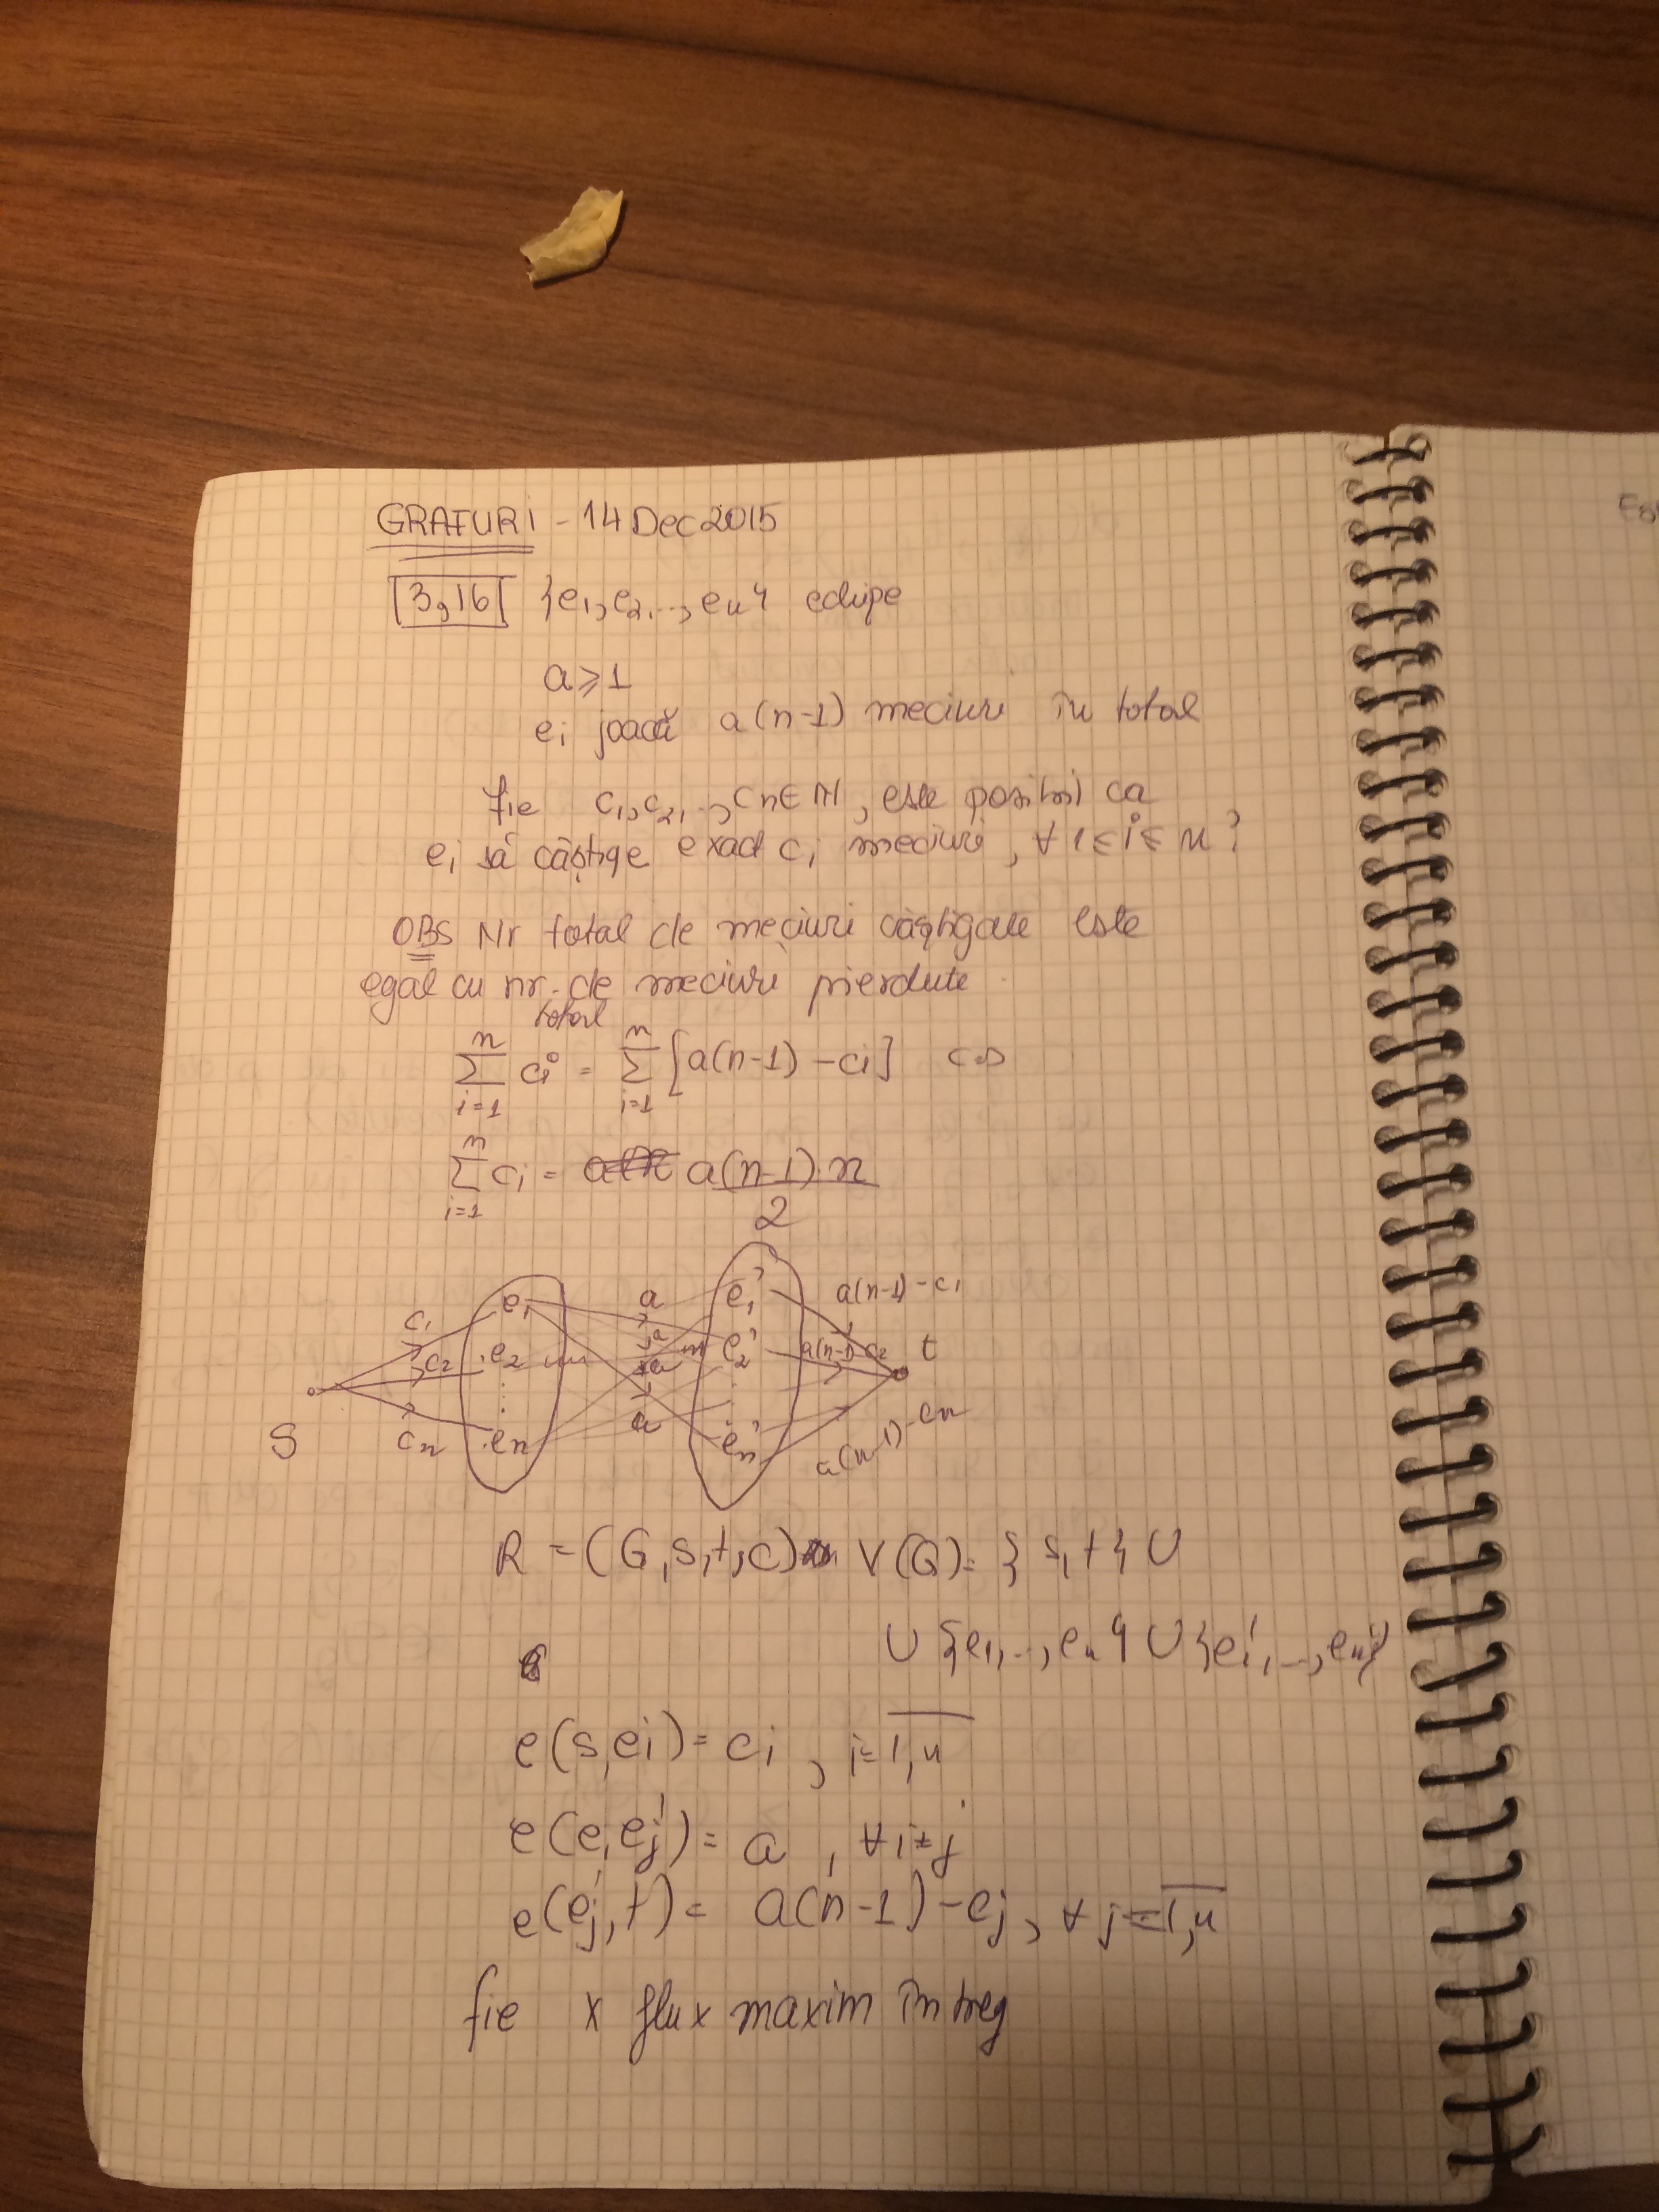 GRAFURI - 14 Dec 2015
3,16 {e1, e2, ..., en} echipe
a ≥ 1
ei joacă a(n-1) meciuri în total
fie c1, c2, .., cn ∈ N, este posibil ca
ei să câștige exact ci meciuri, ∀ 1 ≤ i ≤ n?
OBS Nr total de meciuri câștigate este
egal cu nr. de meciuri pierdute
total
n n
∑ ci = ∑ [a(n-1) - ci] <=>
i=1 i=1
n
∑ ci = a(n-1)·n
i=1 2
e1 a e1' a(n-1) - c1
c1 a
c2 e2 a e2' a(n-1) c2 t
S cn en a en' a(n-1) - cn
R = (G, s, t, c) V(G) = {s, t} ∪
∪ {e1, .., en} ∪ {e1', .., en'}
c(s, ei) = ci, i = 1,n
c(ei, ej') = a, ∀ i ≠ j
c(ej', t) = a(n-1) - cj, ∀ j = 1,n
fie x flux maxim întreg